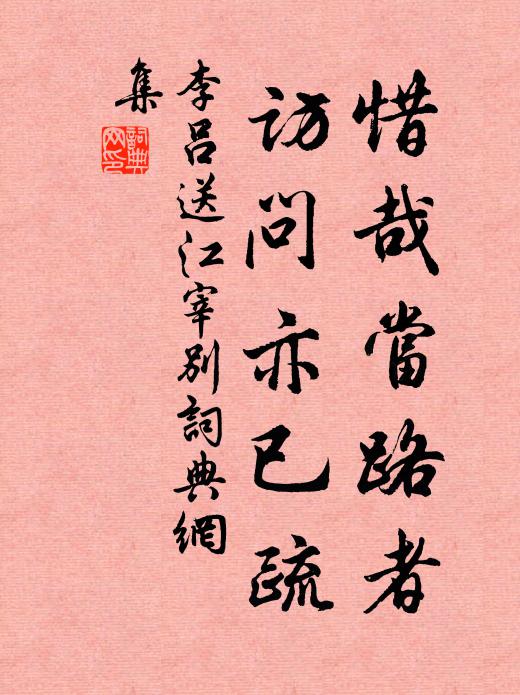 惜哉當路者
訪問亦已疏
李呂送江宰別詞典網
集
詞典
网印